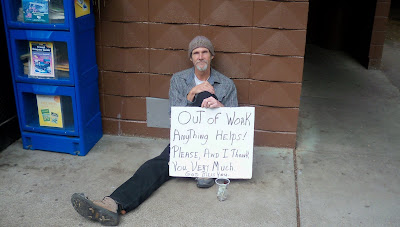 OUT OF WORK
Anything Helps!
Please, And I Thank
You, Very Much.